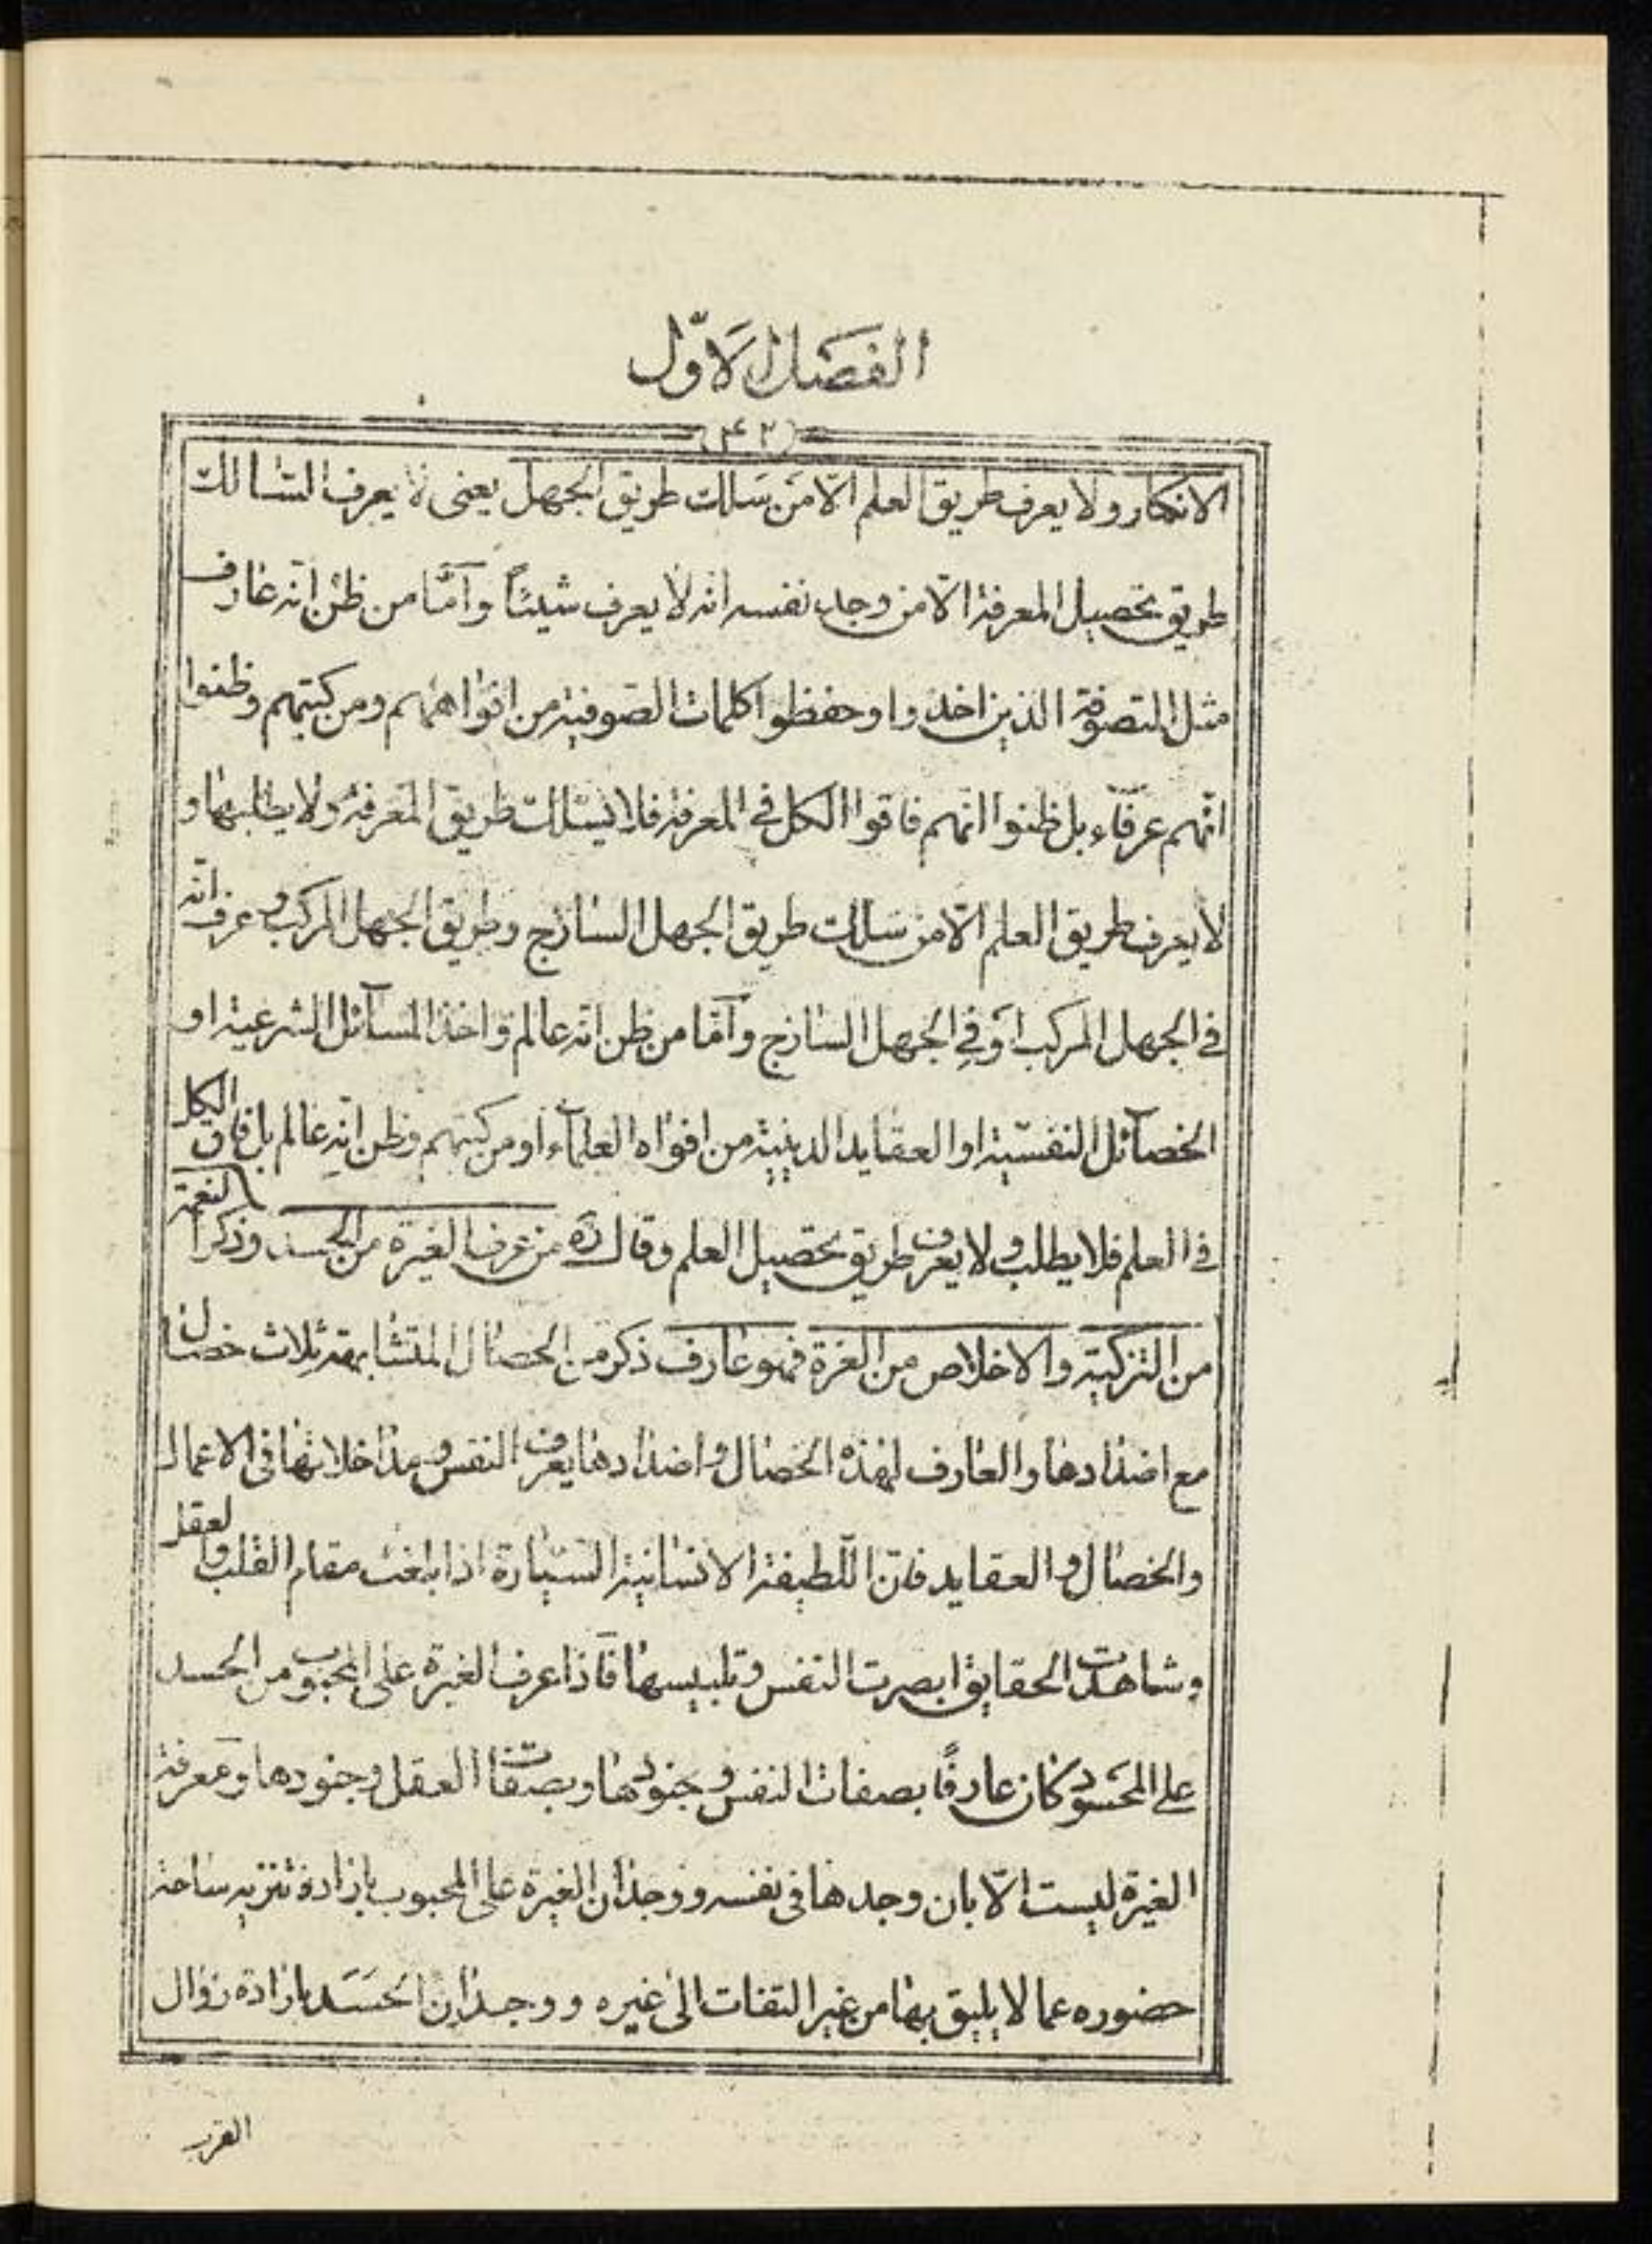 الفصل الاوّل
(۴۲)
الانكار ولا يعرف طريق العلم الّا من سلك طريق الجهل يعنى لا يعرف السالك
طريق تحصيل المعرفة الّا من وجد نفسه انه لا يعرف شيئاً وامّا من ظن انه عارف
مثل المتصوفة الذين اخذوا وحفظوا كلمات الصوفية من افواههم ومن كتبهم وظنوا
انّهم عرفاء بل ظنوا انّهم فاقوا الكل فى المعرفة فلا يسلك طريق المعرفة ولا يطلبها و
لا يعرف طريق العلم الّا من سلك طريق الجهل الساذج وطريق الجهل المركب وعرف انّه
فى الجهل المركب او فى الجهل الساذج وامّا من ظن انّه عالم واخذ المسآئل الشرعية او
الخصآئل النفسيّة او العقايد الدينية من افواه العلمآء او من كتبهم وظن انّه عالم بل فاق الكل
فى العلم فلا يطلب ولا يعرف طريق تحصيل العلم وقال ره من عرف الغيرة من الحسد وذكر النعمة
من التزكية والاخلاص من الغرة فهو عارف ذكر من الخصال المتشابهة ثلاث خصال
مع اضدادها والعارف لهذه الخصال واضدادها يعرف النفس ومداخلاتها فى الاعمال
والخصال والعقايد فانّ اللّطيفة الانسانية السيارة اذا بلغت مقام القلب والعقل
وشاهدت الحقايق ابصرت النفس وتلبيسها فاذا عرف الغيرة على المحبوب من الحسد
على المحسود كان عارفاً بصفات النفس وجنودها وبصفات العقل وجنودها ومعرفة
الغيرة ليست الّا بان وجدها فى نفسه ووجدان الغيرة على المحبوب بارادة تنزيه ساحة
حضوره عما لا يليق بها من غير التفات الى غيره ووجدان الحسد بارادة زوال